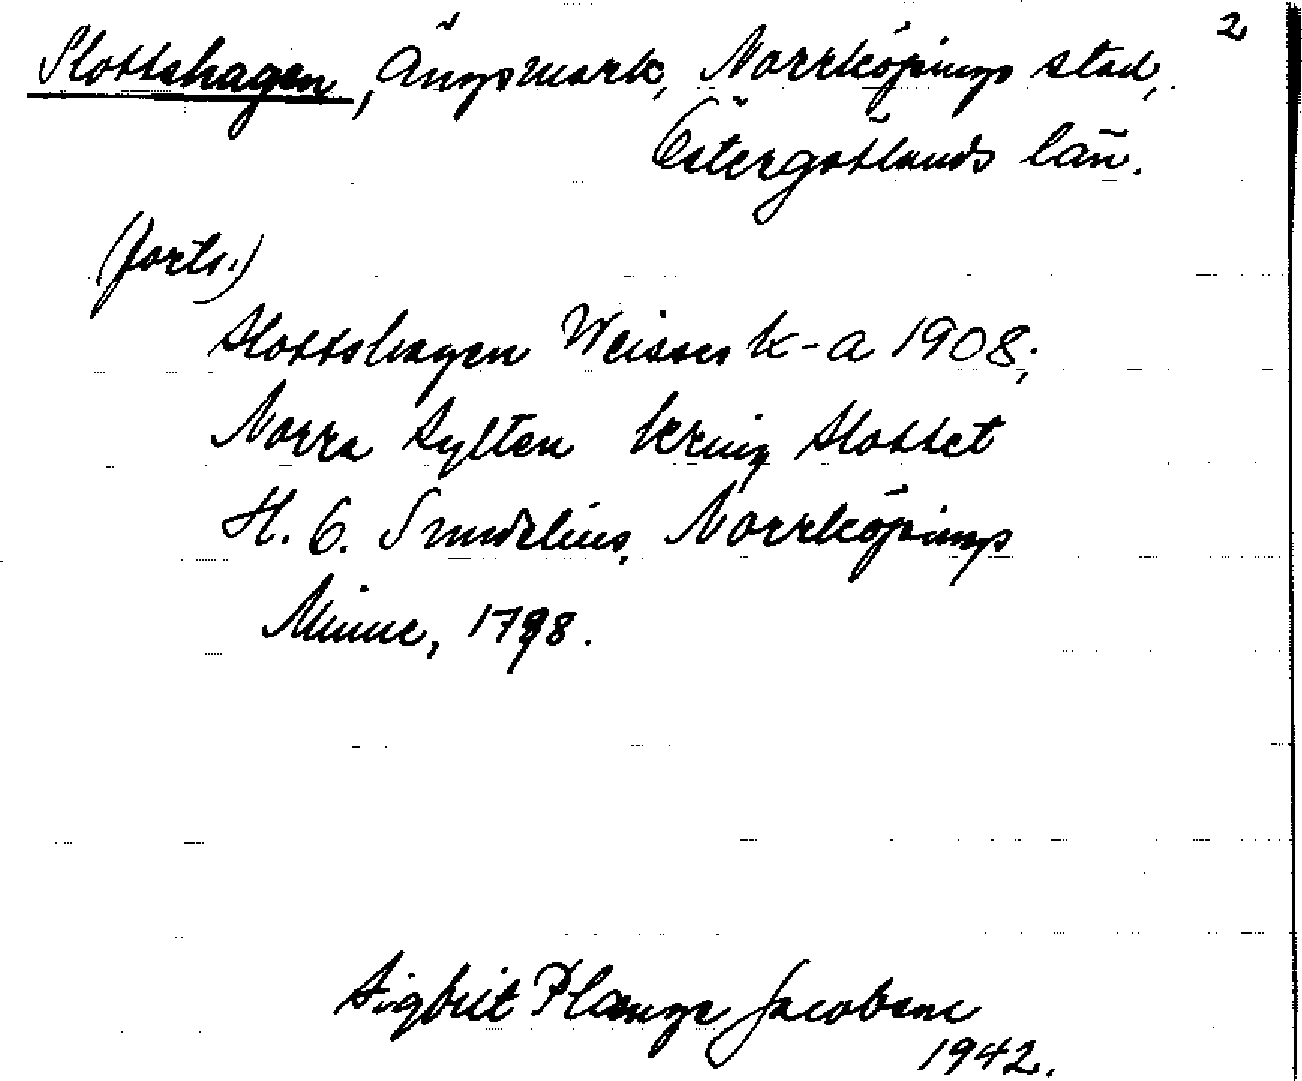 2
Slottshagen, Ängsmark, Norrköpings stad,
Östergötlands län.
(forts.)
Slottshagen Weisses k-a 1908;
Norra Sylten kring Slottet
H. O. Sundelius, Norrköpings
Minne, 1798.
Sigbrit Plænge Jacobson
1942.